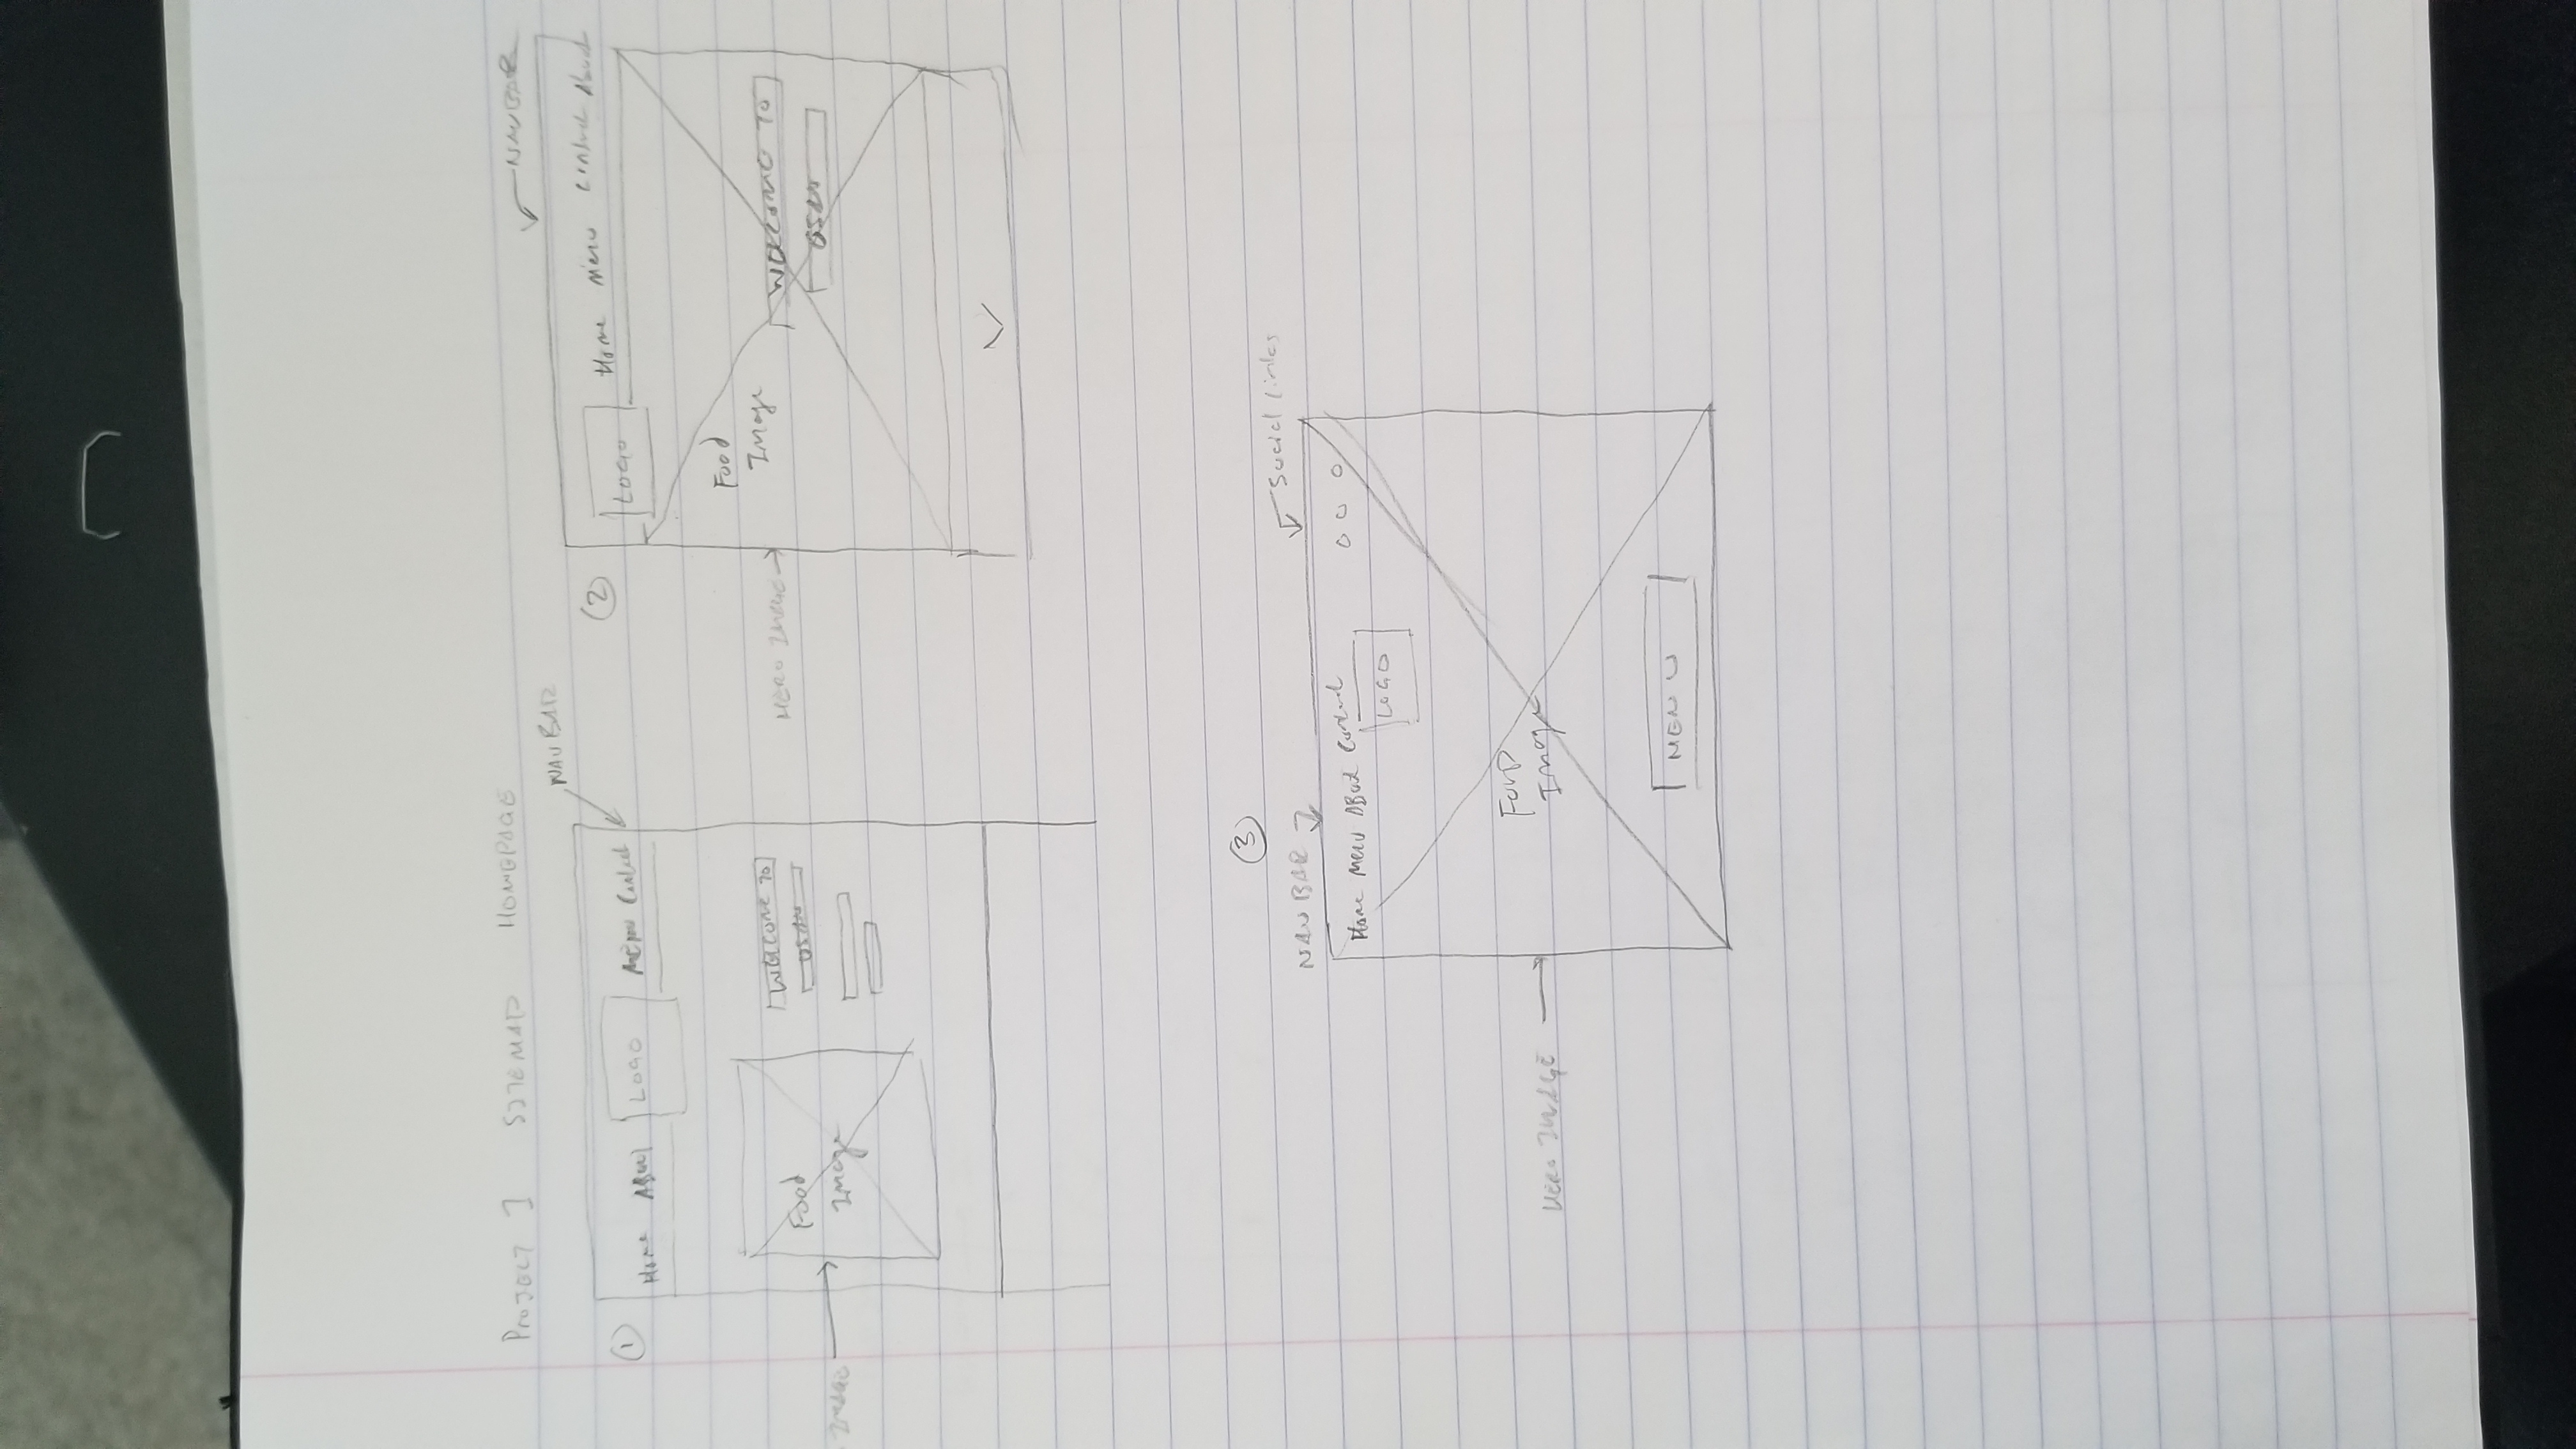 PROJECT 1 SITEMAP HOMEPAGE
① NAVBAR
Home ABout LOGO Menu Contact
WELCOME TO
OSAN
Food
Image
IMAGE
② NAVBAR
LOGO Home Menu Contact About
Food
Image
HERO IMAGE
WELCOME TO
OSAN
③
NAVBAR Social links
Home Menu ABout Contact
LOGO
FOOD
Image
HERO IMAGE
MENU